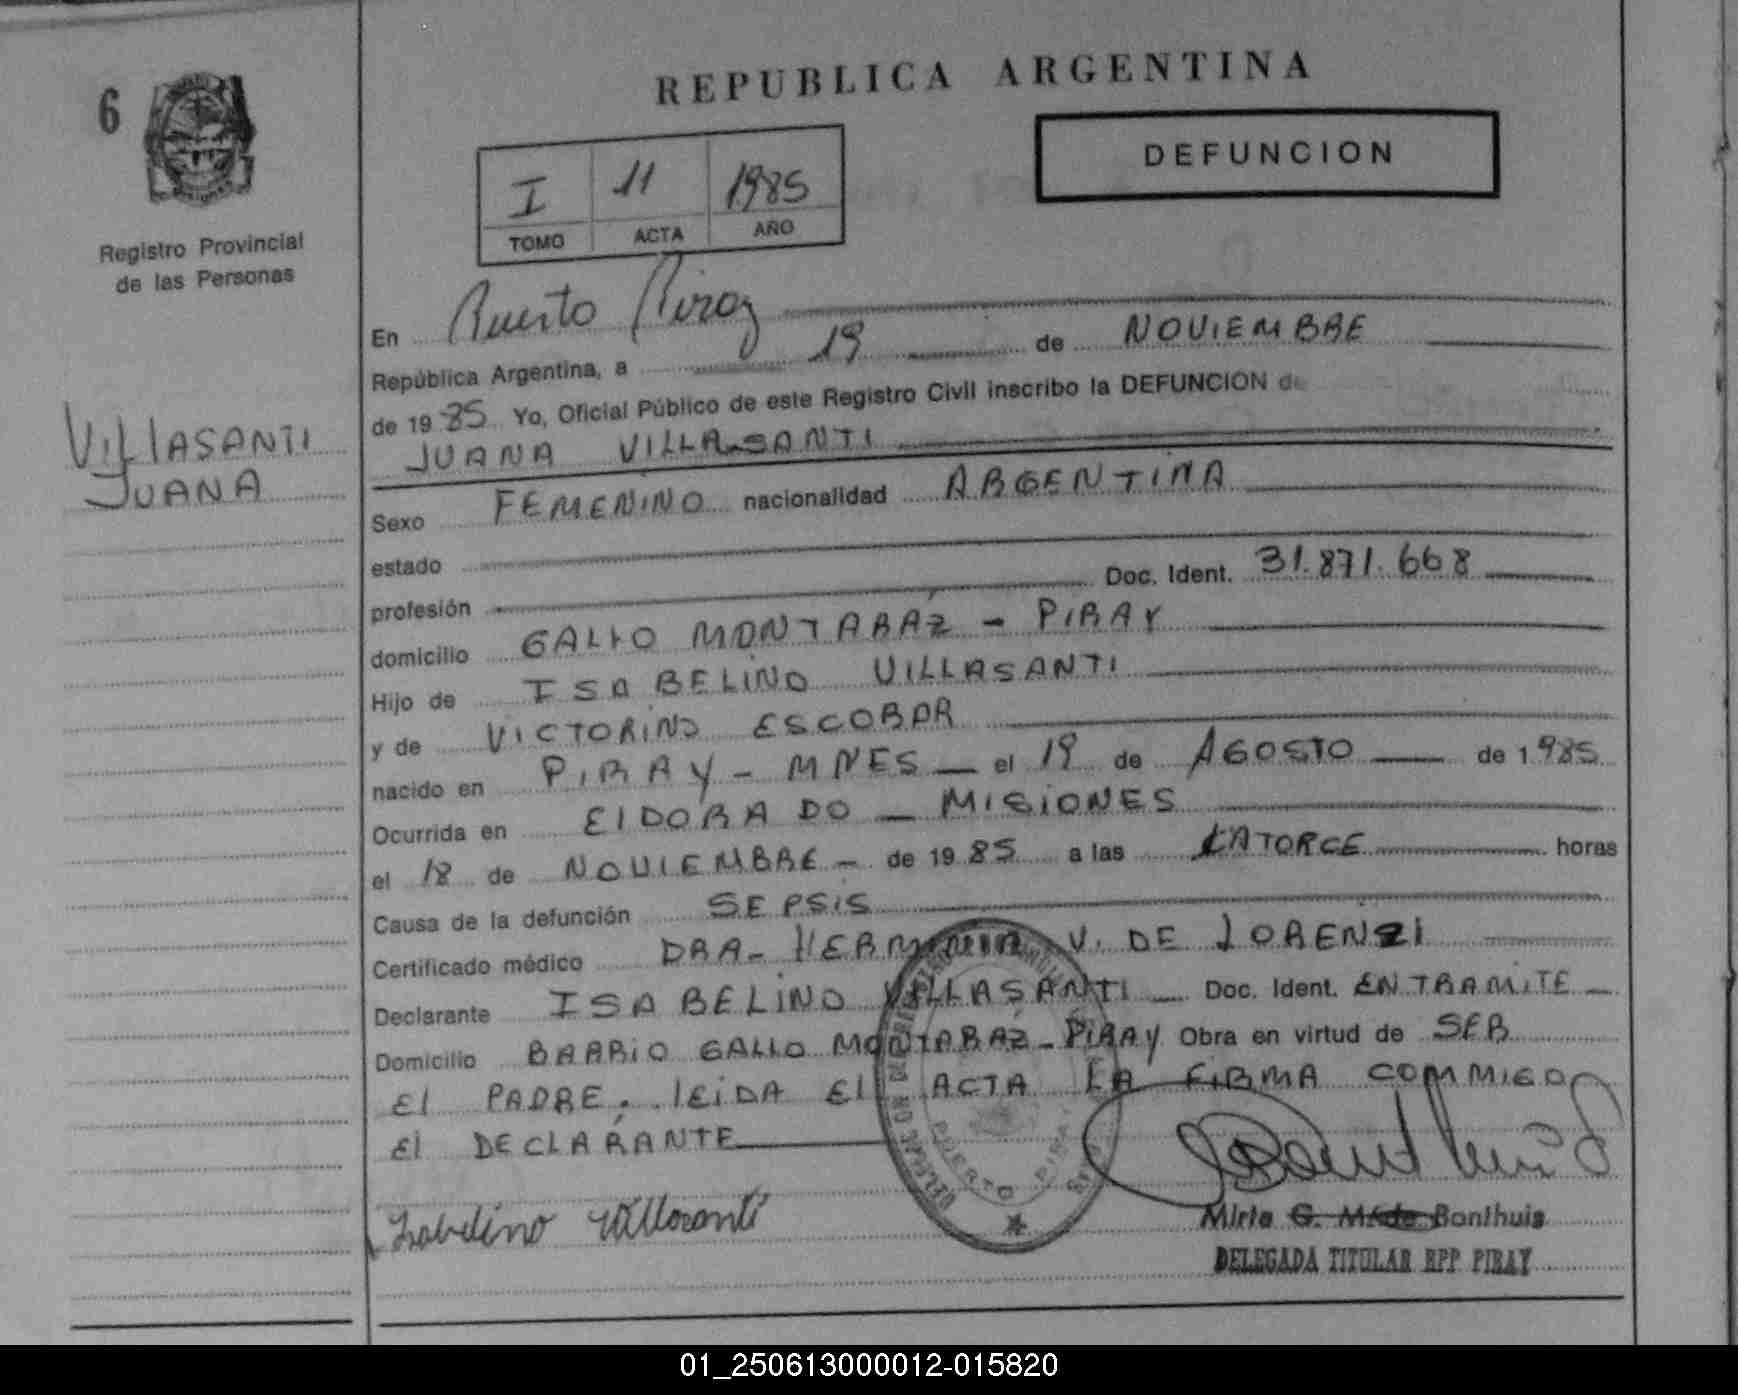 6
Registro Provincial
de las Personas
VILLASANTI
JUANA
REPUBLICA ARGENTINA
DEFUNCION
I 11 1985
TOMO ACTA AÑO
En Puerto Piray
República Argentina, a 19 de NOVIEMBRE
de 1985 Yo, Oficial Público de este Registro Civil inscribo la DEFUNCION de
JUANA VILLASANTI
Sexo FEMENINO nacionalidad ARGENTINA
estado
profesión Doc. Ident. 31.871.668
domicilio GALLO MONTARAZ - PIRAY
Hijo de ISABELINO VILLASANTI
y de VICTORINO ESCOBAR
nacido en PIRAY - MNES el 19 de AGOSTO de 1985
Ocurrida en ELDORADO - MISIONES
el 18 de NOVIEMBRE - de 1985 a las CATORCE horas
Causa de la defunción SEPSIS
Certificado médico DRA - HERMINIA V. DE LORENZI
Declarante ISABELINO VILLASANTI Doc. Ident. EN TRAMITE
Domicilio BARRIO GALLO MONTARAZ - PIRAY Obra en virtud de SER
El PADRE. LEIDA EL ACTA LA FIRMA COMMIGO
El DECLARANTE
PUERTO PIRAY
Isabelino Villasanti
Mirta G. Bonthuis
DELEGADA TITULAR RPP PIRAY
01_250613000012-015820